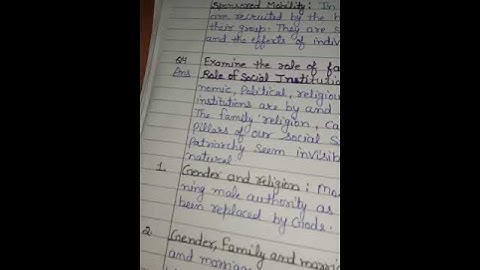 Sponsored Mobility: In
are recruited by the
their group. They are
and the effects of indiv
Q4 Examine the role of fa
Ans Role of Social Institutio
nomic, Political, religiou
institutions are by and
The family religion, Ca
Pillars of our social S
Patriarchy seem invisib
natural
1. Gender and religion: Ma
ning male authority as
been replaced by Gods.
2. Gender, Family and marri
and marriage